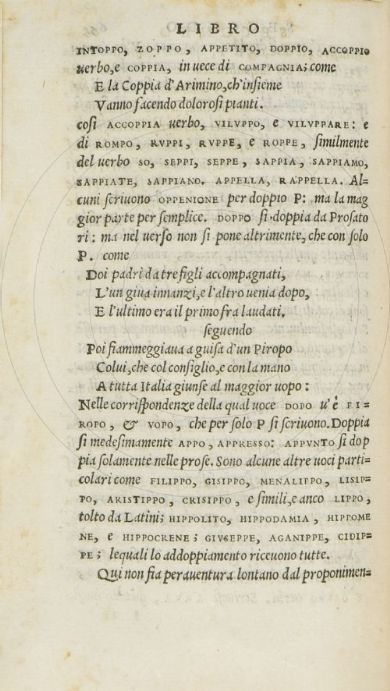 LIBRO
INTOPPO, ZOPPO, APPETITO, DOPPIO, ACCOPPIO
uerbo, e COPPIA, in uece di COMPAGNIA; come
E la Coppia d'Arimino, ch'insieme
Vanno facendo dolorosi pianti.
cosi ACCOPPIA uerbo, VILVPPO, e VILVPPARE: e
di ROMPO, RVPPI, RVPPE, e ROPPE, similmente
del uerbo SO, SEPPI, SEPPE, SAPPIA, SAPPIAMO,
SAPPIATE, SAPPIANO. APPELLA, RAPPELLA. Al-
cuni scriuono OPPENIONE per doppio P: ma la mag
gior parte per semplice. DOPPO si doppia da Prosato
ri: ma nel uerso non si pone altrimente, che con solo
P. come
Doi padri da tre figli accompagnati,
L'un giua innanzi, e l'altro uenia dopo,
E l'ultimo era il primo fra laudati.
seguendo
Poi fiammeggiaua a guisa d'un Piropo
Colui, che col consiglio, e con la mano
A tutta Italia giunse al maggior uopo:
Nelle corrispondenze della qual uoce DOPO u'è PI-
ROPO, & VOPO, che per solo P si scriuono. Doppia
si medesimamente APPO, APPRESSO: APPVNTO si dop
pia solamente nelle prose. Sono alcune altre uoci parti-
colari come FILIPPO, GISIPPO, MENALIPPO, LISIP-
PO, ARISTIPPO, CRISIPPO, e simili, e anco LIPPO,
tolto da Latini; HIPPOLITO, HIPPODAMIA, HIPPOME
NE, e HIPPOCRENE; GIVSEPPE, AGANIPPE, CIDIP-
PE; lequali lo addoppiamento riceuono tutte.
Qui non fia perauentura lontano dal proponimen-